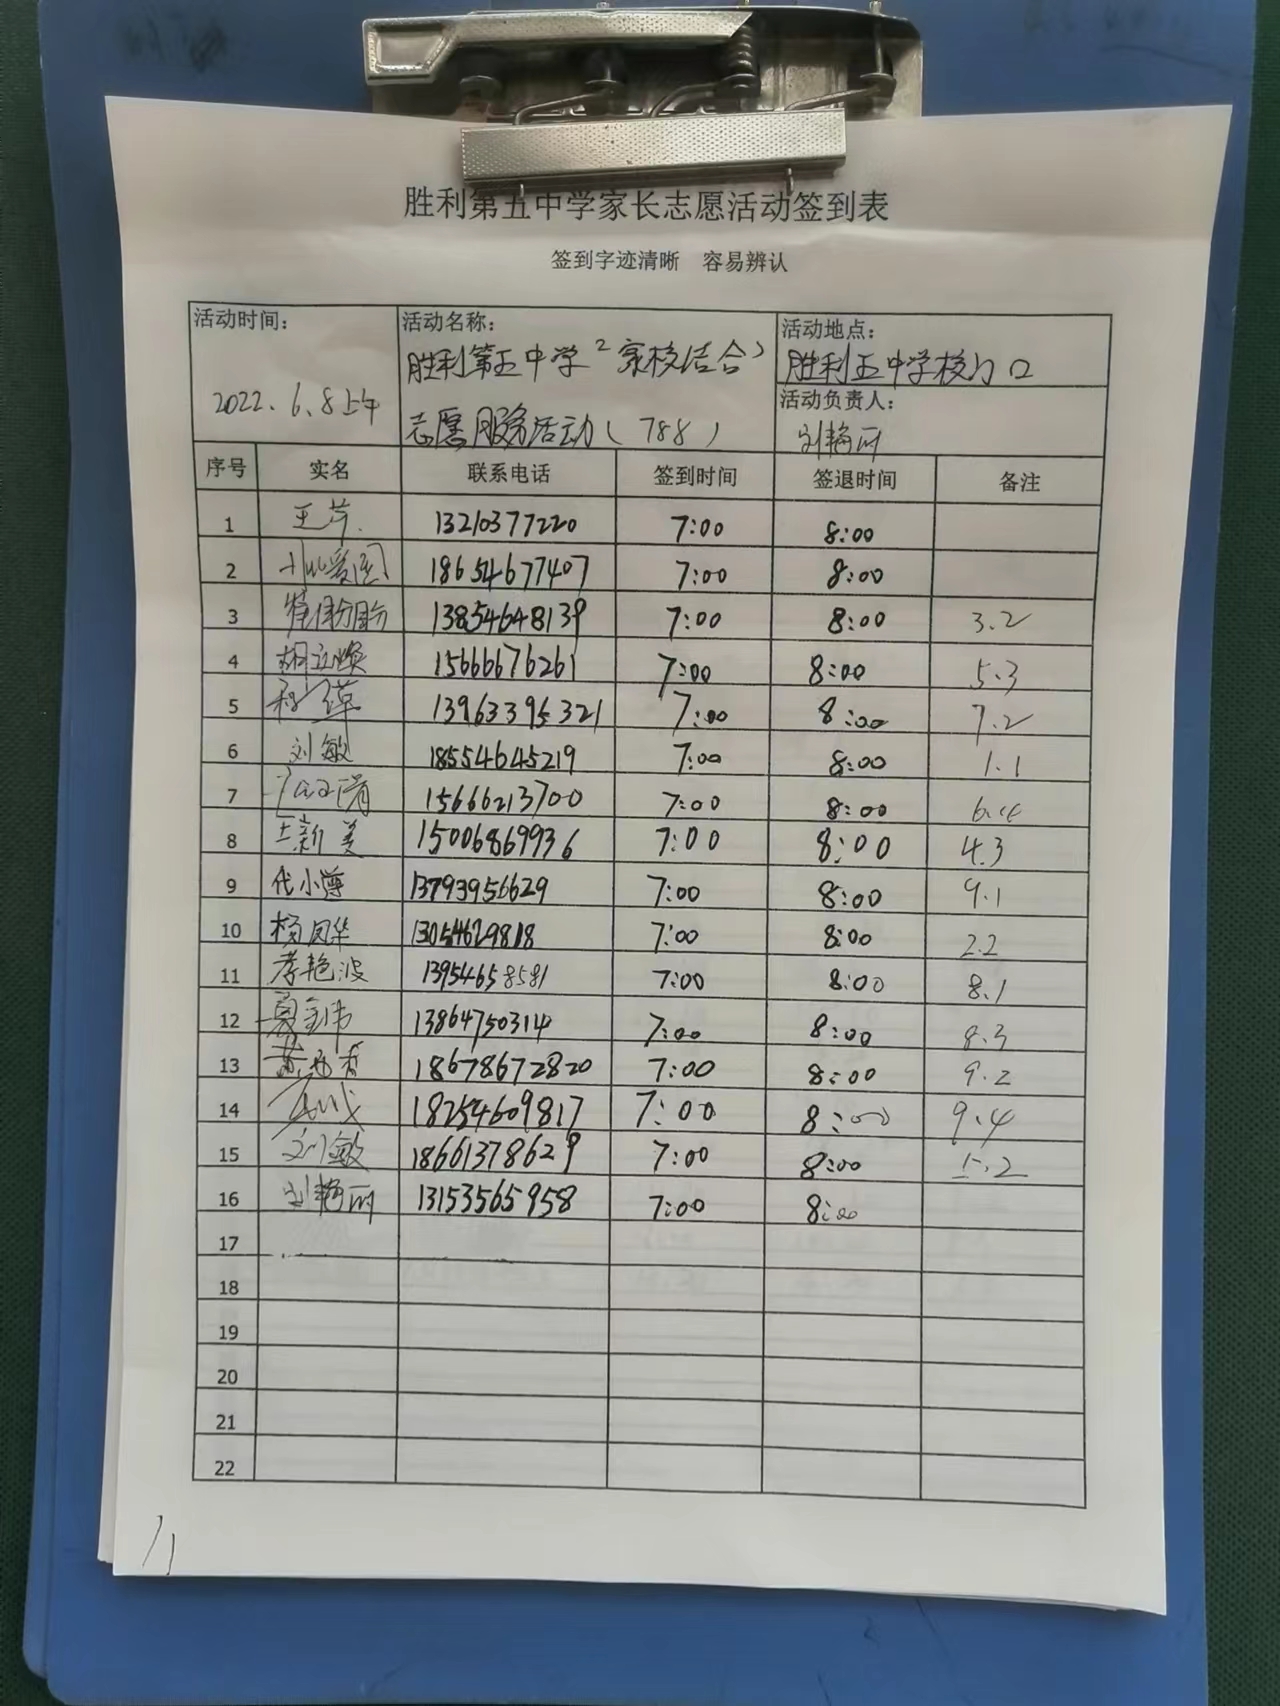 胜利第五中学家长志愿活动签到表
签到字迹清晰 容易辨认
活动时间： 活动名称： 活动地点：
胜利第五中学“家校结合” 胜利五中学校门口
2022.6.8上午 活动负责人：
志愿服务活动（788） 刘艳丽
序号 实名 联系电话 签到时间 签退时间 备注
1 王芹 13210377220 7:00 8:00
2 18654677407 7:00 8:00
3 13854648139 7:00 8:00 3.2
4 胡立焕 15666676261 7:00 8:00 5.3
5 13963395321 7:00 8:00 7.2
6 刘敏 18554645219 7:00 8:00 1.1
7 15666213700 7:00 8:00 6.4
8 王新美 15006869936 7:00 8:00 4.3
9 代小薄 13793956629 7:00 8:00 9.1
10 杨凤华 13054629818 7:00 8:00 2.2
11 李艳波 13954658581 7:00 8:00 8.1
12 夏全伟 13864750314 7:00 8:00 8.3
13 18678672820 7:00 8:00 9.2
14 18254609817 7:00 8:00 9.4
15 刘敏 18661378629 7:00 8:00 5.2
16 刘艳丽 13153565958 7:00 8:00
17
18
19
20
21
22